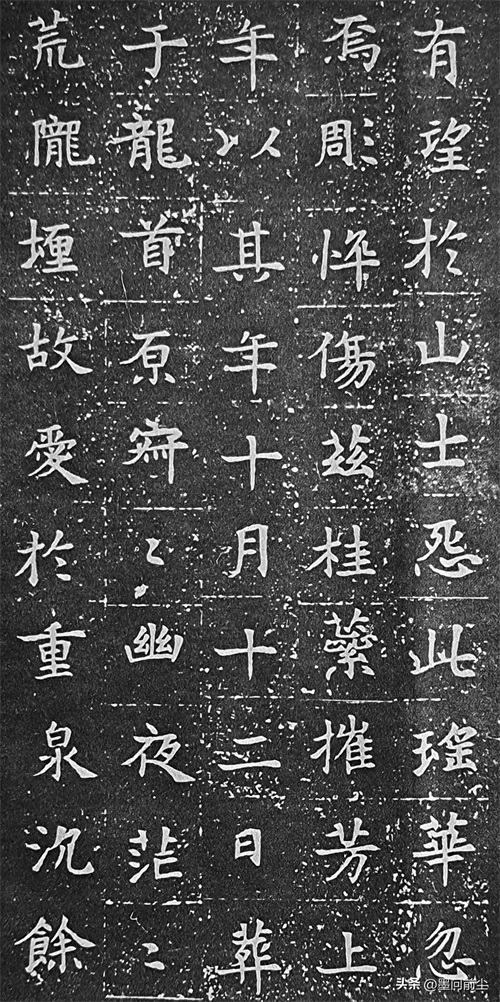 有望於山士怨此瑤華忽
焉彫悴傷茲桂蘂摧芳上
年以其年十月十二日葬
于龍首原寂〻幽夜茫〻
荒隴埋故愛於重泉沉餘
头条 @墨回前尘